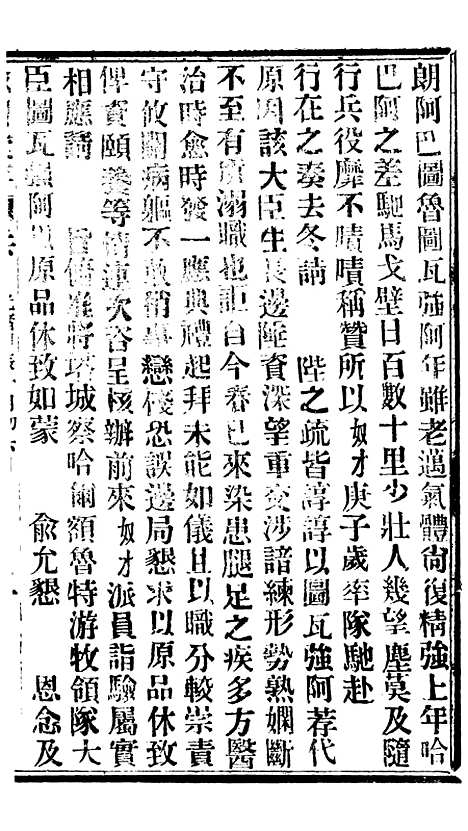 朗阿巴圖魯圖瓦強阿年雖老邁氣體尙復精強上年哈
巴阿之差馳馬戈壁日百數十里少壯人幾望塵莫及隨
行兵役靡不嘖嘖稱贊所以奴才庚子歲率隊馳赴
行在之奏去冬請　陛之疏皆諄諄以圖瓦強阿荐代
原因該大臣生長邊陲資深望重交涉諳練形勢熟嫻斷
不至有隕溺職也詎自今春已來染患腿足之疾多方醫
治時愈時發一應典禮起拜未能如儀且以職分較崇責
守攸關病軀不敢稍事戀棧恐誤邊局懇求以原品休致
俾資頤養等情連次咨呈核辦前來奴才派員詣驗屬實
相應請　旨俯准將塔城察哈爾額魯特游牧領隊大
臣圖瓦強阿以原品休致如蒙　俞允懇　恩念及